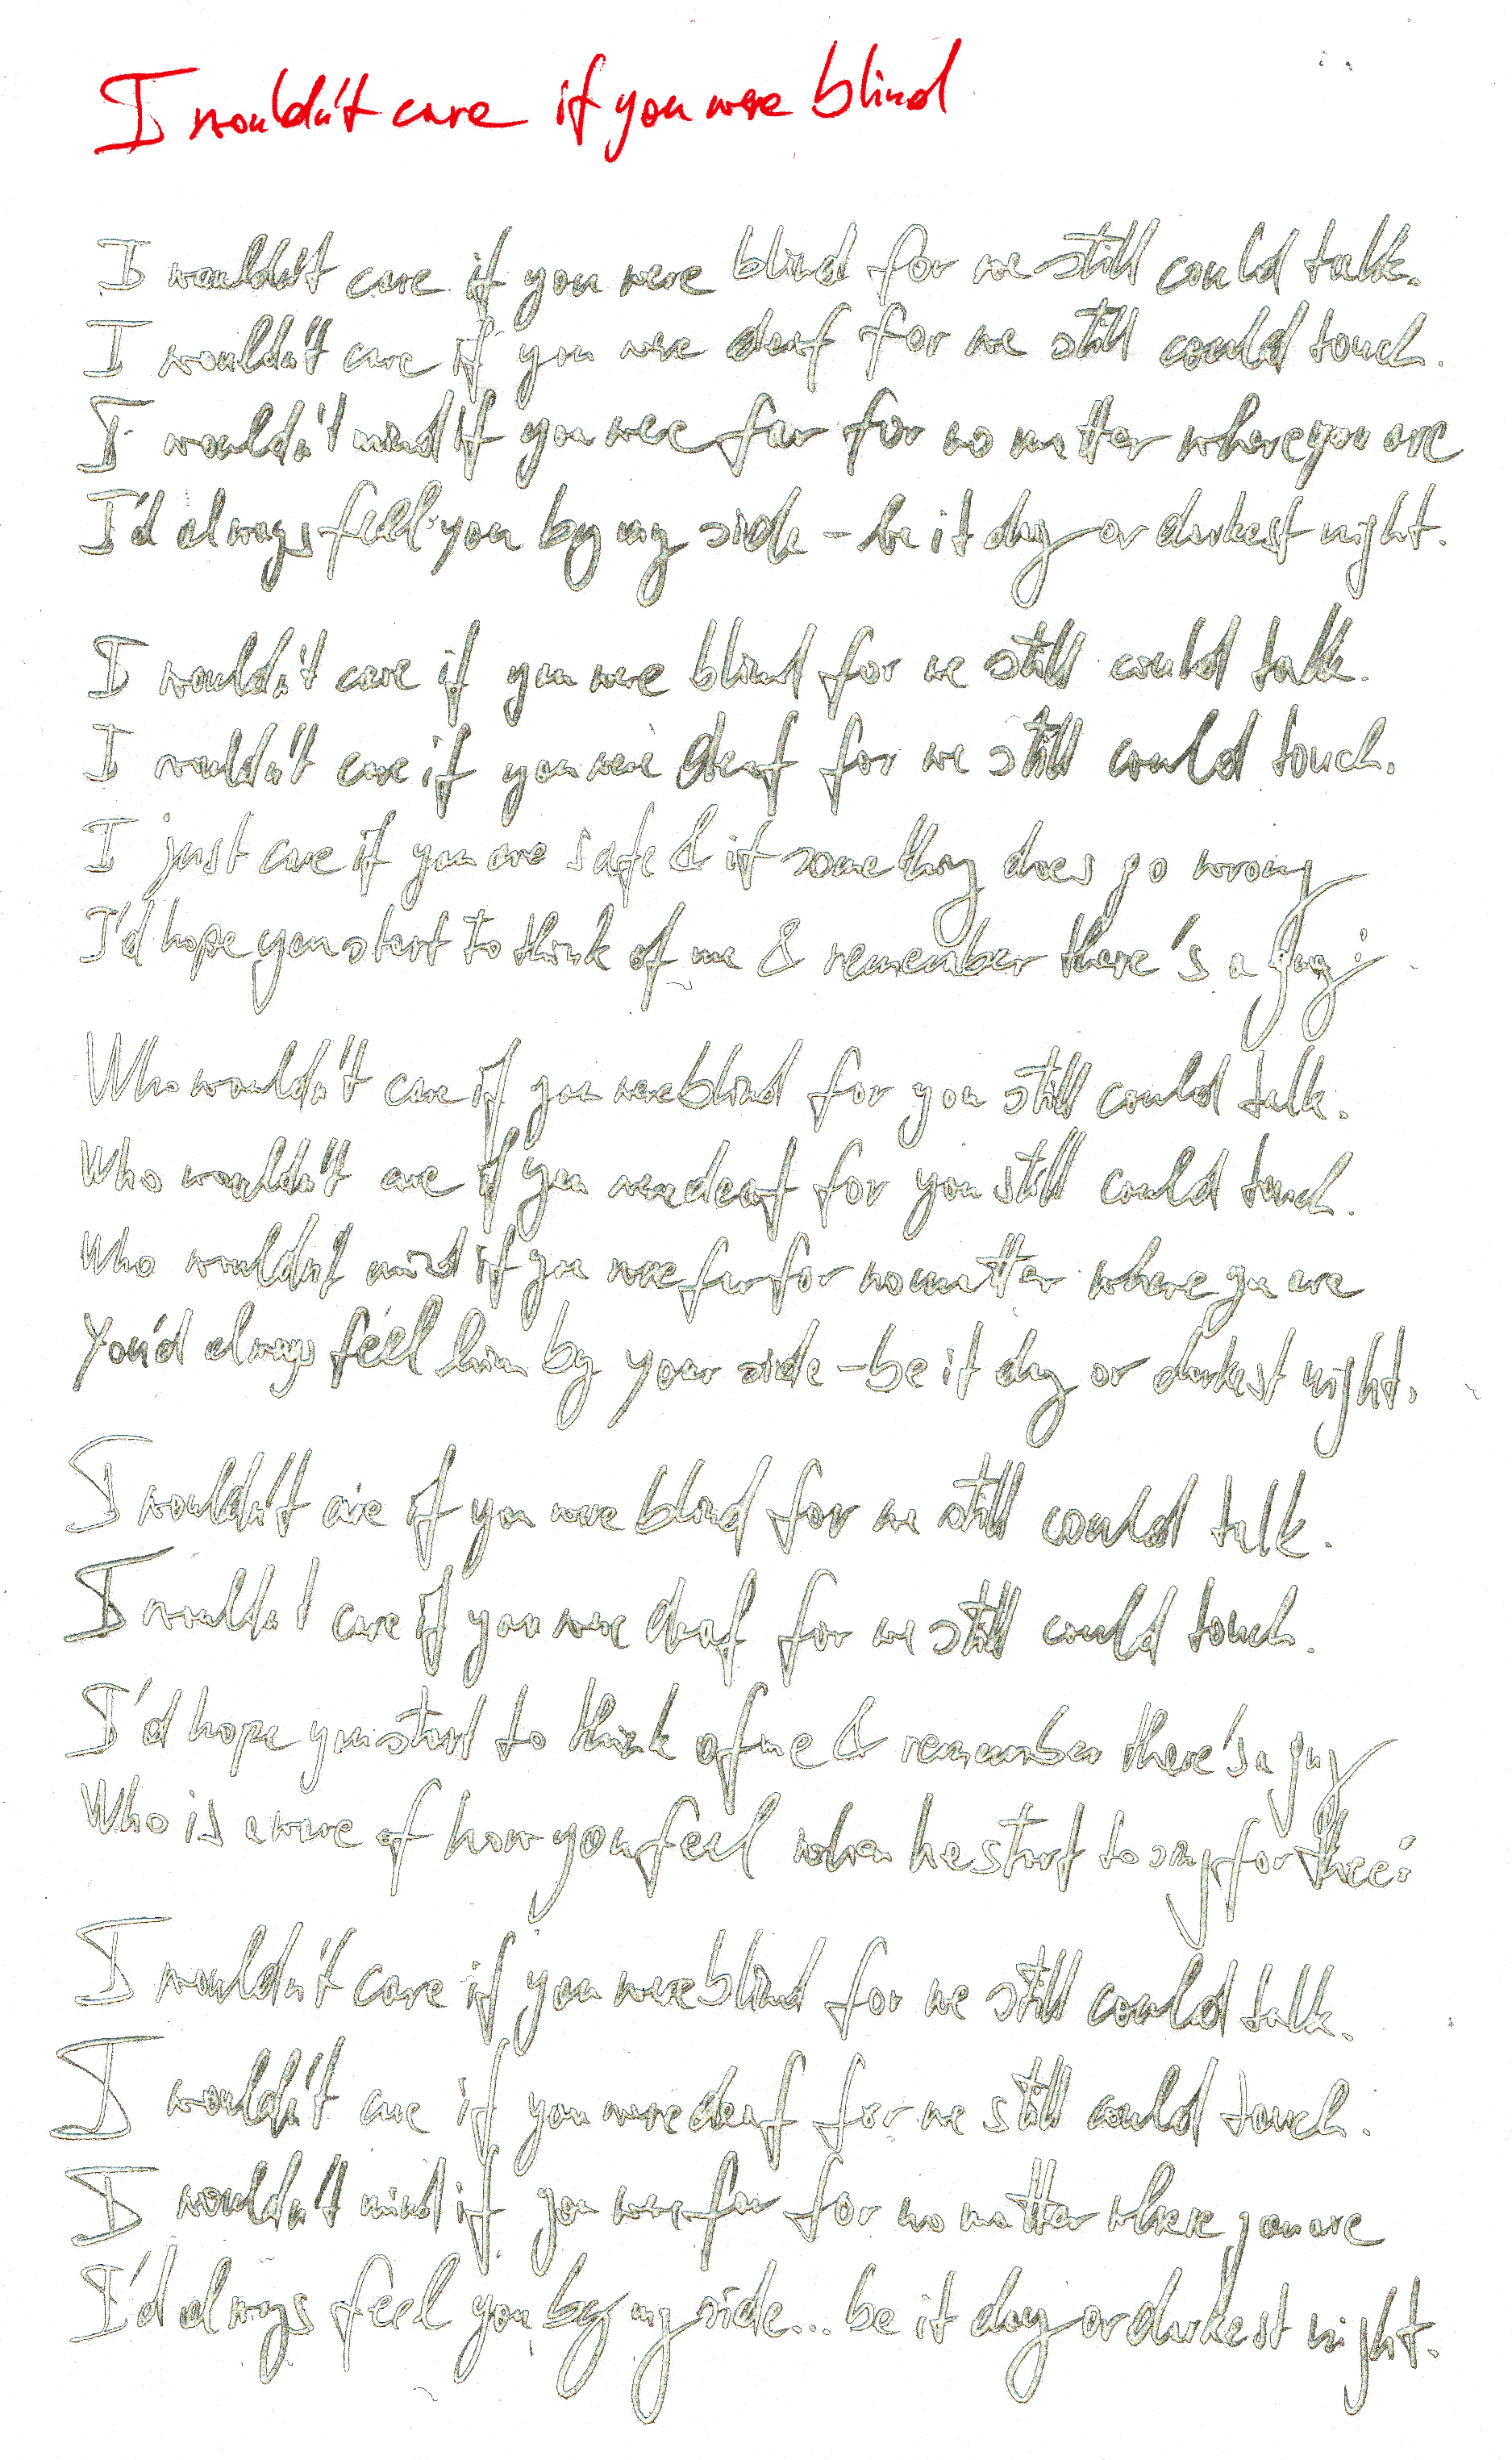 I wouldn't care if you were blind
I wouldn't care if you were blind for we still could talk.
I wouldn't care if you were deaf for we still could touch.
I wouldn't mind if you were far for no matter where you are
I'd always feel you by my side - be it day or darkest night.
I wouldn't care if you were blind for we still could talk.
I wouldn't care if you were deaf for we still could touch.
I just care if you are safe & if something does go wrong
I'd hope you start to think of me & remember there's a guy:
Who wouldn't care if you were blind for you still could talk.
Who wouldn't care if you were deaf for you still could touch.
Who wouldn't mind if you were far for no matter where you are
You'd always feel him by your side - be it day or darkest night.
I wouldn't care if you were blind for we still could talk.
I wouldn't care if you were deaf for we still could touch.
I'd hope you start to think of me & remember there's a guy
Who is aware of how you feel when he start to sing for thee:
I wouldn't care if you were blind for we still could talk.
I wouldn't care if you were deaf for we still could touch.
I wouldn't mind if you were far for no matter where you are
I'd always feel you by my side... be it day or darkest night.